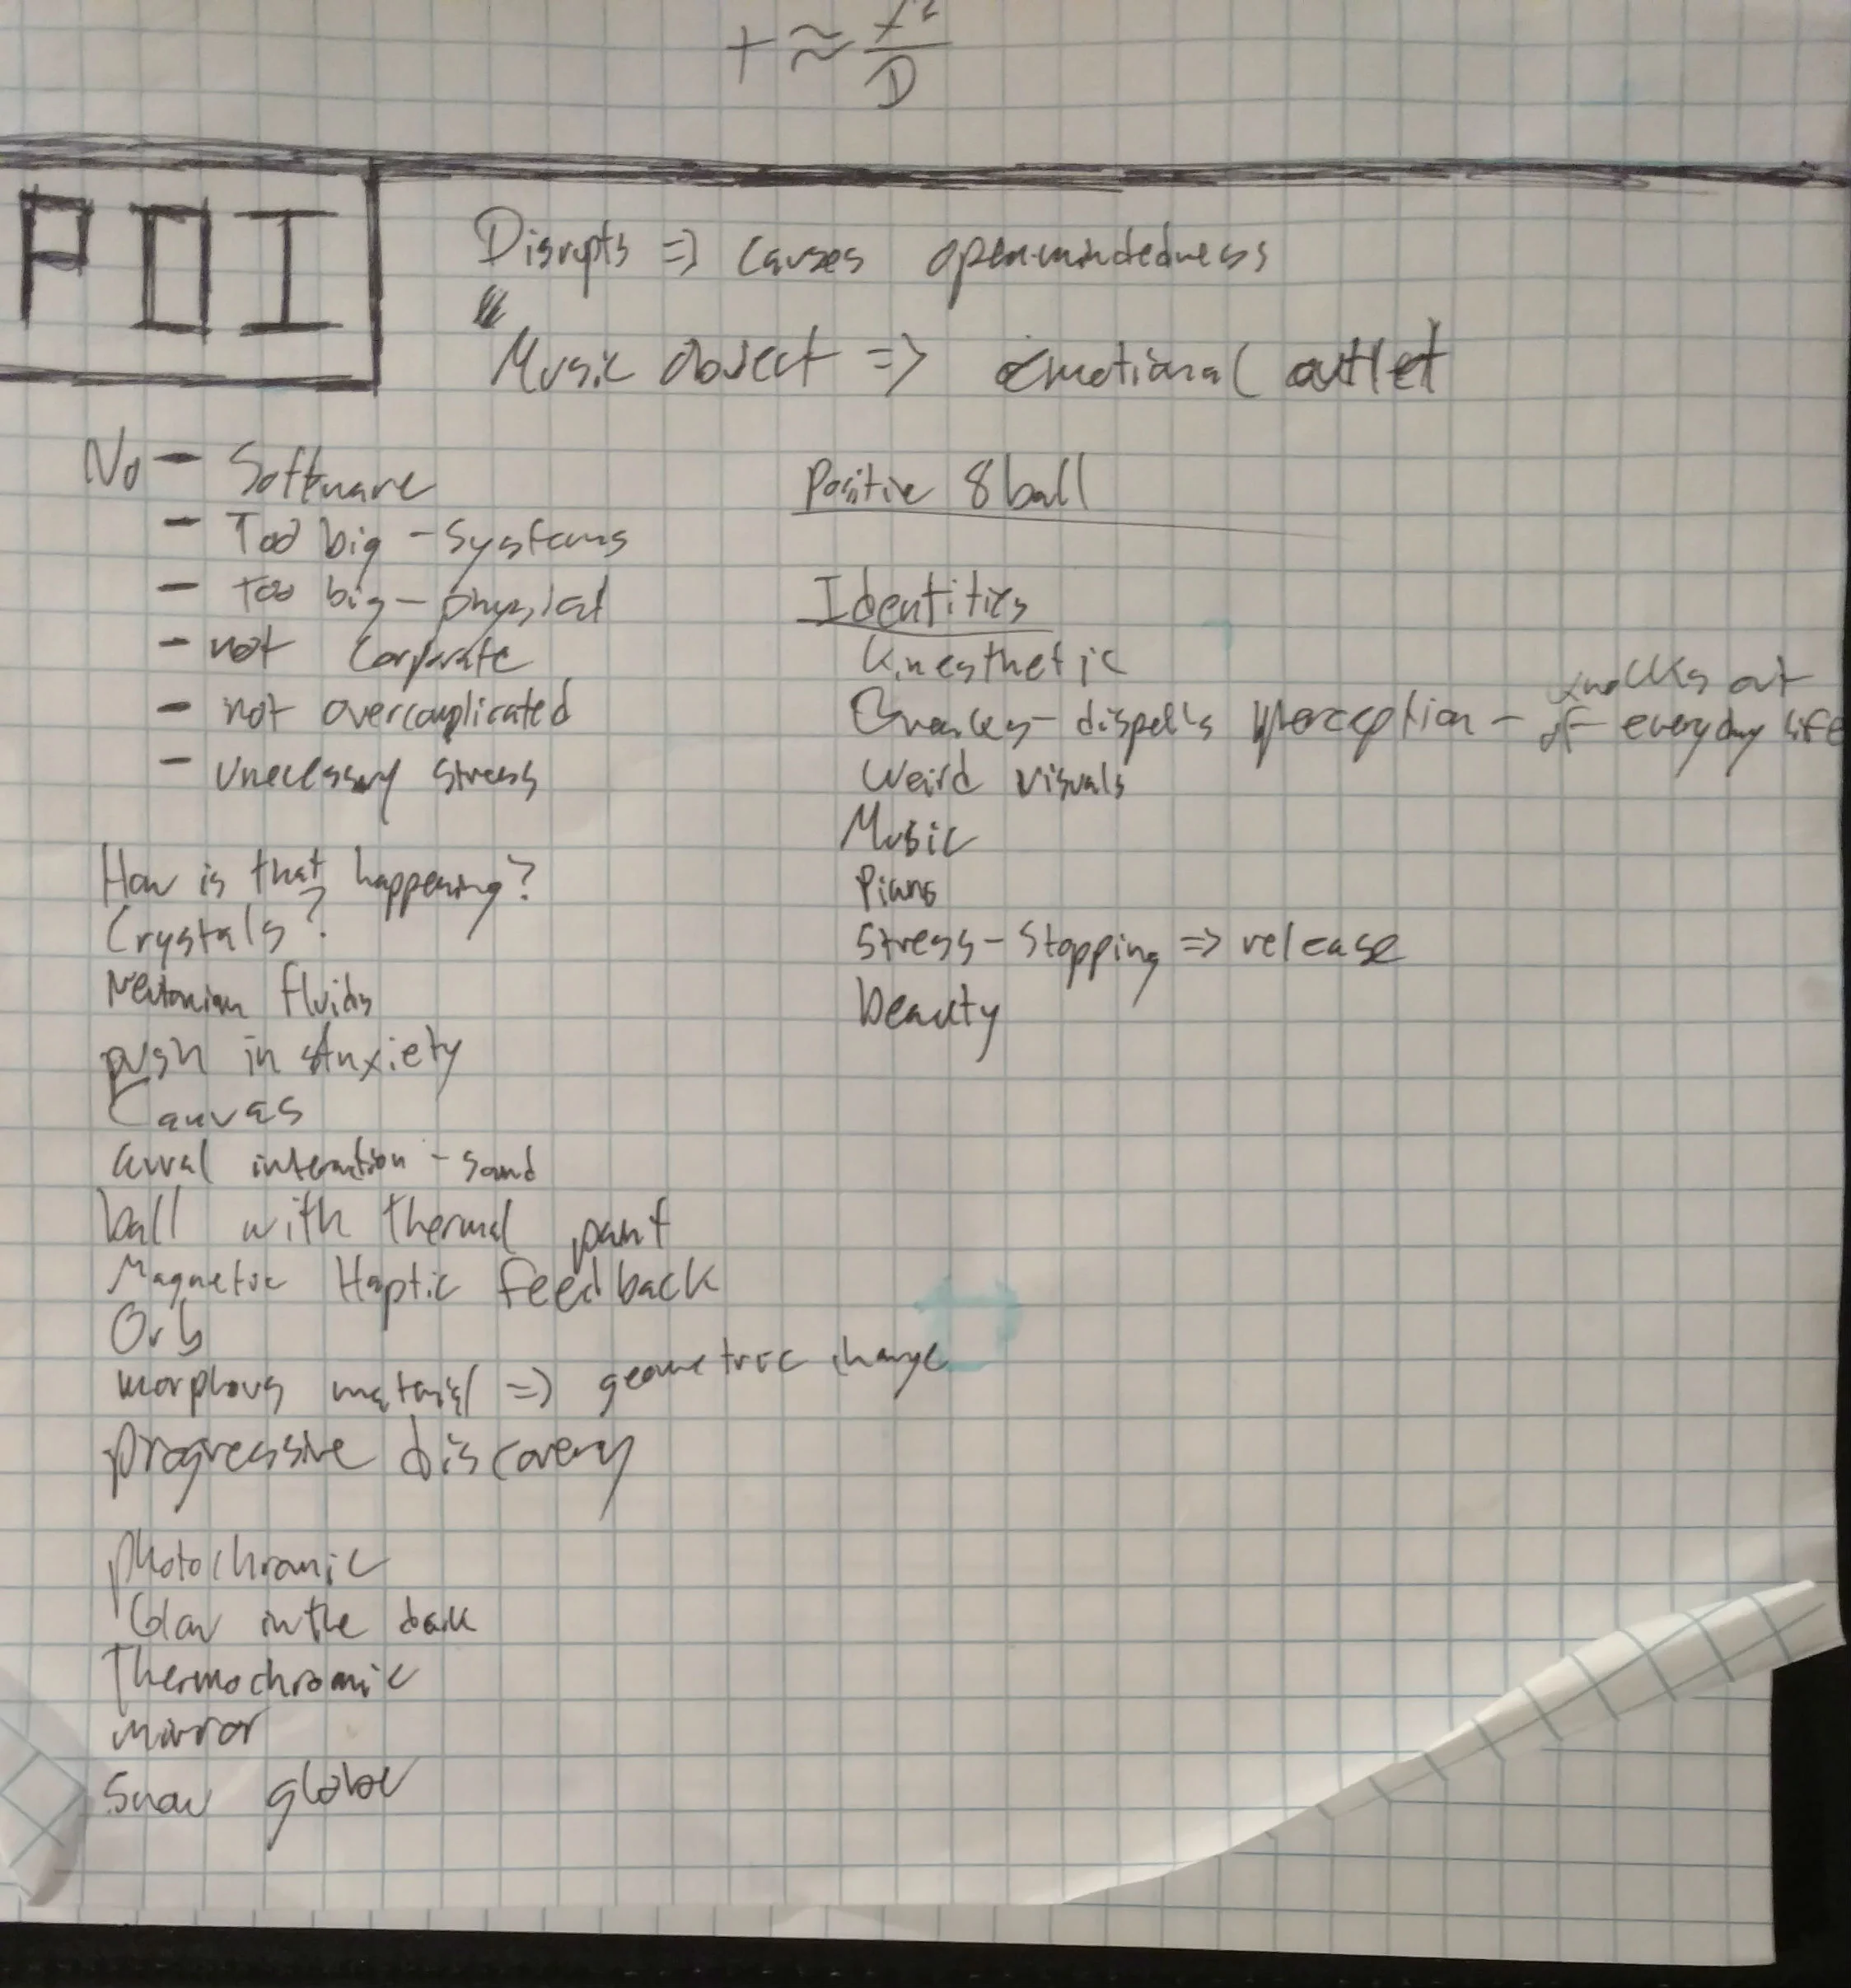 t ≈ x²/D
POI
Disrupts => causes openmindedness
Music object => emotional outlet
No - Software
- Too big - systems
- too big - physical
- not corporate
- not overcomplicated
- unecessary stress
How is that happening?
Crystals?
Newtonian fluids
push in Anxiety
Canvas
aural interaction - sound
ball with thermal paint
Magnetic Haptic feedback
Orb
morphous material => geometric change
progressive discovery
photochromic
Glow in the dark
Thermochromic
mirror
Snow globe
Positive 8 ball
Identities
Kinesthetic
dispells perception - knocks out of everyday life
Weird visuals
Music
Piano
Stress-Stopping => release
beauty